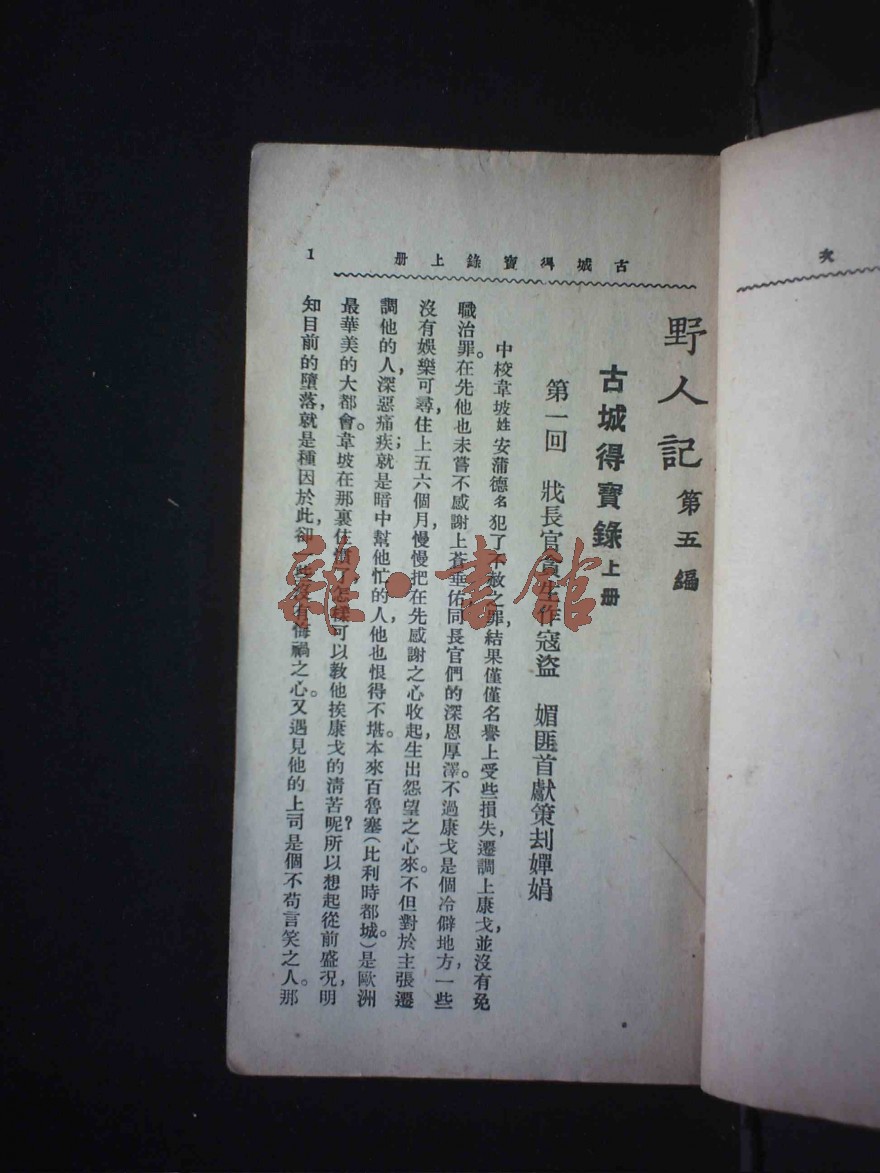 古城得寶錄上册
1
野人記 第五編
古城得寶錄上册
第一回 戕長官 生作寇盜 媚匪首獻策刦嬋娟
中校韋坡姓安蒲德名犯了不赦之罪，結果僅僅名譽上受些損失，遷調上康戈，並沒有免
職治罪。在先他也未嘗不感謝上蒼垂佑，同長官們的深恩厚澤。不過康戈是個冷僻地方，一些
沒有娛樂可尋，住上五六個月，慢慢把在先感謝之心收起，生出怨望之心來。不但對於主張遷
調他的人，深惡痛疾；就是暗中幫他忙的人，他也恨得不堪。本來百魯塞（比利時都城。）是歐洲
最華美的大都會。韋坡在那裏住慣了，怎樣可以教他挨康戈的清苦呢？所以想起從前盛况，明
知目前的墮落，就是種因於此，卻一些沒有悔禍之心。又遇見他的上司是個不苟言笑之人。那
次
雜·書館